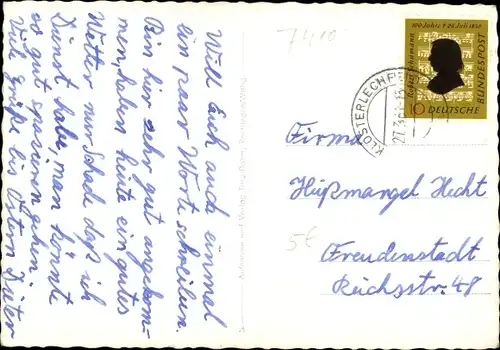 Will Euch auch einmal
ein paar Worte schreiben.
Bin hier sehr gut angekom-
men, haben heute ein gutes
Wetter nur Schade daß ich
Dienst habe, man könnte
so gut spazieren gehen.
Viel grüße bis Ostern Dieter
7410
100 Jahre † 29. Juli 1856
Robert Schumann
10 DEUTSCHE BUNDESPOST
KLOSTERLECHF
Firma
Hüßmangel Hecht
5€
Freudenstadt
Reichsstr. 48